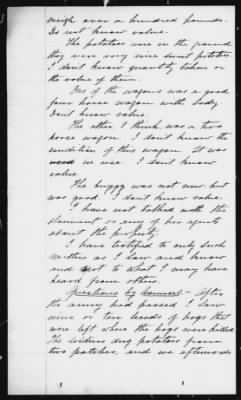 weigh over a hundred pounds.
Do not know value.
The potatoes were in the ground
they were very nice sweet potatoes.
I don't know quantity taken or
the value of them.
One of the wagons was a good
four horse wagon with body
Don't know value.
The other I think was a two
horse wagon. I don't know the
condition of this wagon. It was
in use. I don't know
value.
The buggy was not new but
was good. I don't know value.
I have not talked with the
claimant or any of her agents
about the property.
I have testified to only such
matters as I saw and know
and not to what I may have
heard from others.
Questions by Counsel - After
the army had passed I saw
nine or ten heads of hogs that
were left where the hogs were killed
The soldiers dug potatoes from
two patches, and we afterwards